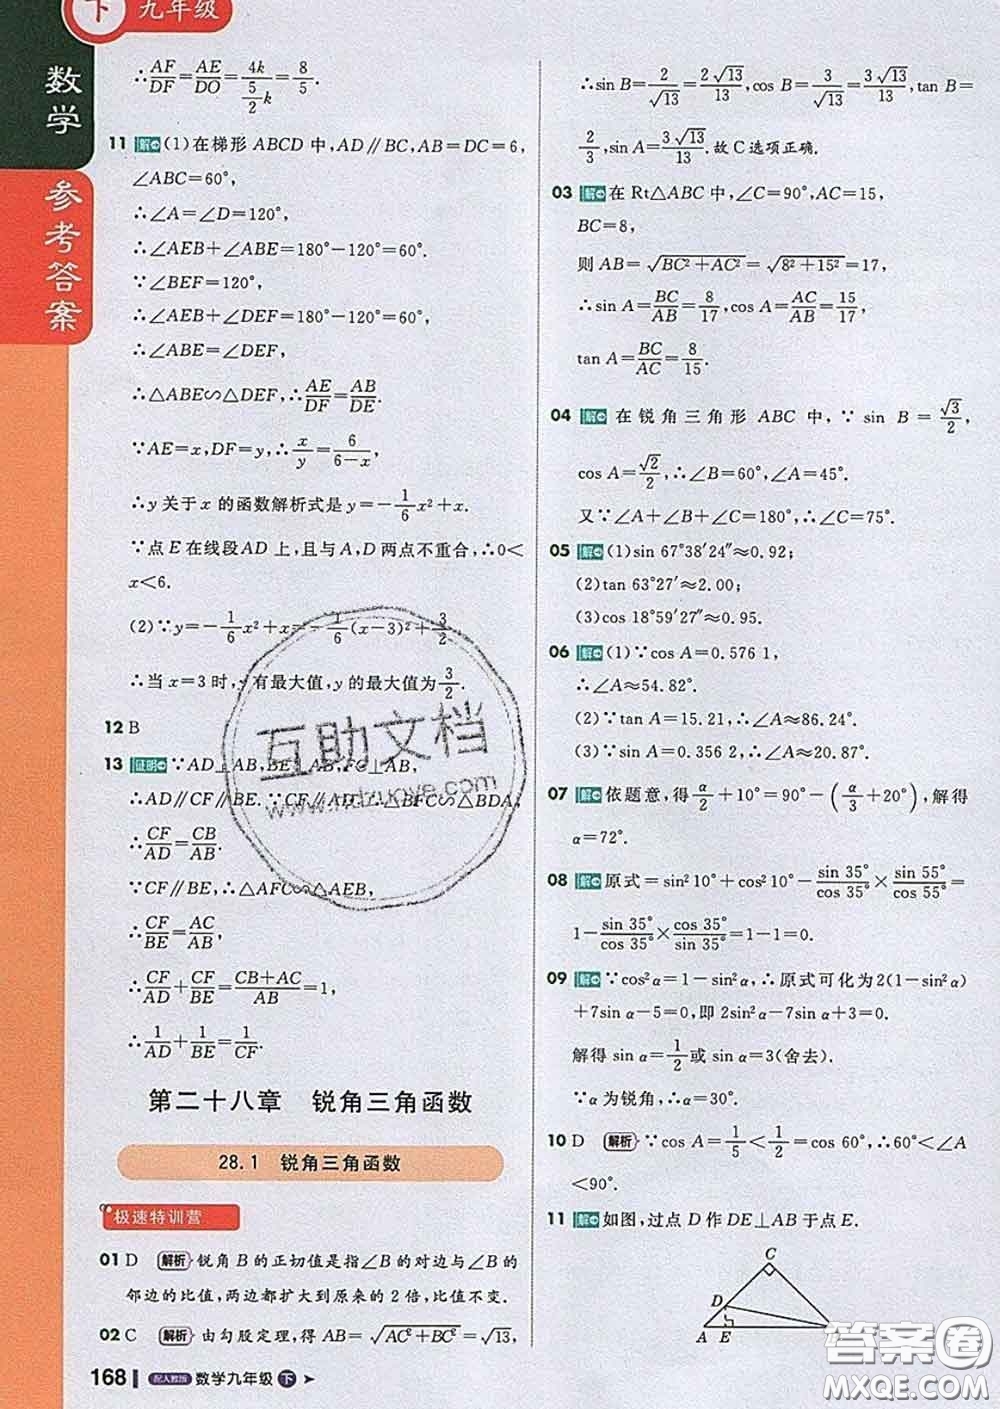 下 九年级
数学
参考答案
∴AF/DF=AE/DO=4k/(5/2 k)=8/5.
11 解 (1)在梯形 ABCD 中,AD∥BC,AB=DC=6,
∠ABC=60°,
∴∠A=∠D=120°,
∴∠AEB+∠ABE=180°-120°=60°.
∵∠BEF=120°,
∴∠AEB+∠DEF=180°-120°=60°,
∴∠ABE=∠DEF,
∴△ABE∽△DEF,∴AE/DF=AB/DE.
∵AE=x,DF=y,∴x/y=6/(6-x),
∴y 关于 x 的函数解析式是 y=-1/6x²+x.
∵点 E 在线段 AD 上,且与 A,D 两点不重合,∴0<
x<6.
(2)∵y=-1/6x²+x=-1/6(x-3)²+3/2,
∴当 x=3 时,y 有最大值,y 的最大值为3/2.
12 B
13 证明 ∵AD⊥AB,BE⊥AB,FC⊥AB,
∴AD∥CF∥BE.∵CF∥AD,∴△BFC∽△BDA,
∴CF/AD=CB/AB.
∵CF∥BE,∴△AFC∽△AEB,
∴CF/BE=AC/AB,
∴CF/AD+CF/BE=(CB+AC)/AB=1,
∴1/AD+1/BE=1/CF.
第二十八章 锐角三角函数
28.1 锐角三角函数
极速特训营
01 D 解析 锐角 B 的正切值是指∠B 的对边与∠B 的
邻边的比值,两边都扩大到原来的 2 倍,比值不变.
02 C 解析 由勾股定理,得 AB=√(AC²+BC²)=√13,
168 配人教版 数学九年级 下
∴sin B=2/√13=2√13/13,cos B=3/√13=3√13/13,tan B=
2/3,sin A=3√13/13.故 C 选项正确.
03 解 在 Rt△ABC 中,∠C=90°,AC=15,
BC=8,
则 AB=√(BC²+AC²)=√(8²+15²)=17,
∴sin A=BC/AB=8/17,cos A=AC/AB=15/17,
tan A=BC/AC=8/15.
04 解 在锐角三角形 ABC 中,∵sin B=√3/2,
cos A=√2/2,∴∠B=60°,∠A=45°.
又∵∠A+∠B+∠C=180°,∴∠C=75°.
05 解 (1)sin 67°38′24″≈0.92;
(2)tan 63°27′≈2.00;
(3)cos 18°59′27″≈0.95.
06 解 (1)∵cos A=0.576 1,
∴∠A≈54.82°.
(2)∵tan A=15.21,∴∠A≈86.24°.
(3)∵sin A=0.356 2,∴∠A≈20.87°.
07 解 依题意,得α/2+10°=90°-(α/3+20°),解得
α=72°.
08 解 原式=sin²10°+cos²10°-sin 35°/cos 35°×sin 55°/cos 55°=
1-sin 35°/cos 35°×cos 35°/sin 35°=1-1=0.
09 解 ∵cos²α=1-sin²α,∴原式可化为2(1-sin²α)
+7sin α-5=0,即 2sin²α-7sin α+3=0.
解得 sin α=1/2或 sin α=3(舍去).
∵α为锐角,∴α=30°.
10 D 解析 ∵cos A=1/5<1/2=cos 60°,∴60°<∠A
<90°.
11 解 如图,过点 D 作 DE⊥AB 于点 E.
C
D
A E
互助文档
答案圈
MXQE.COM